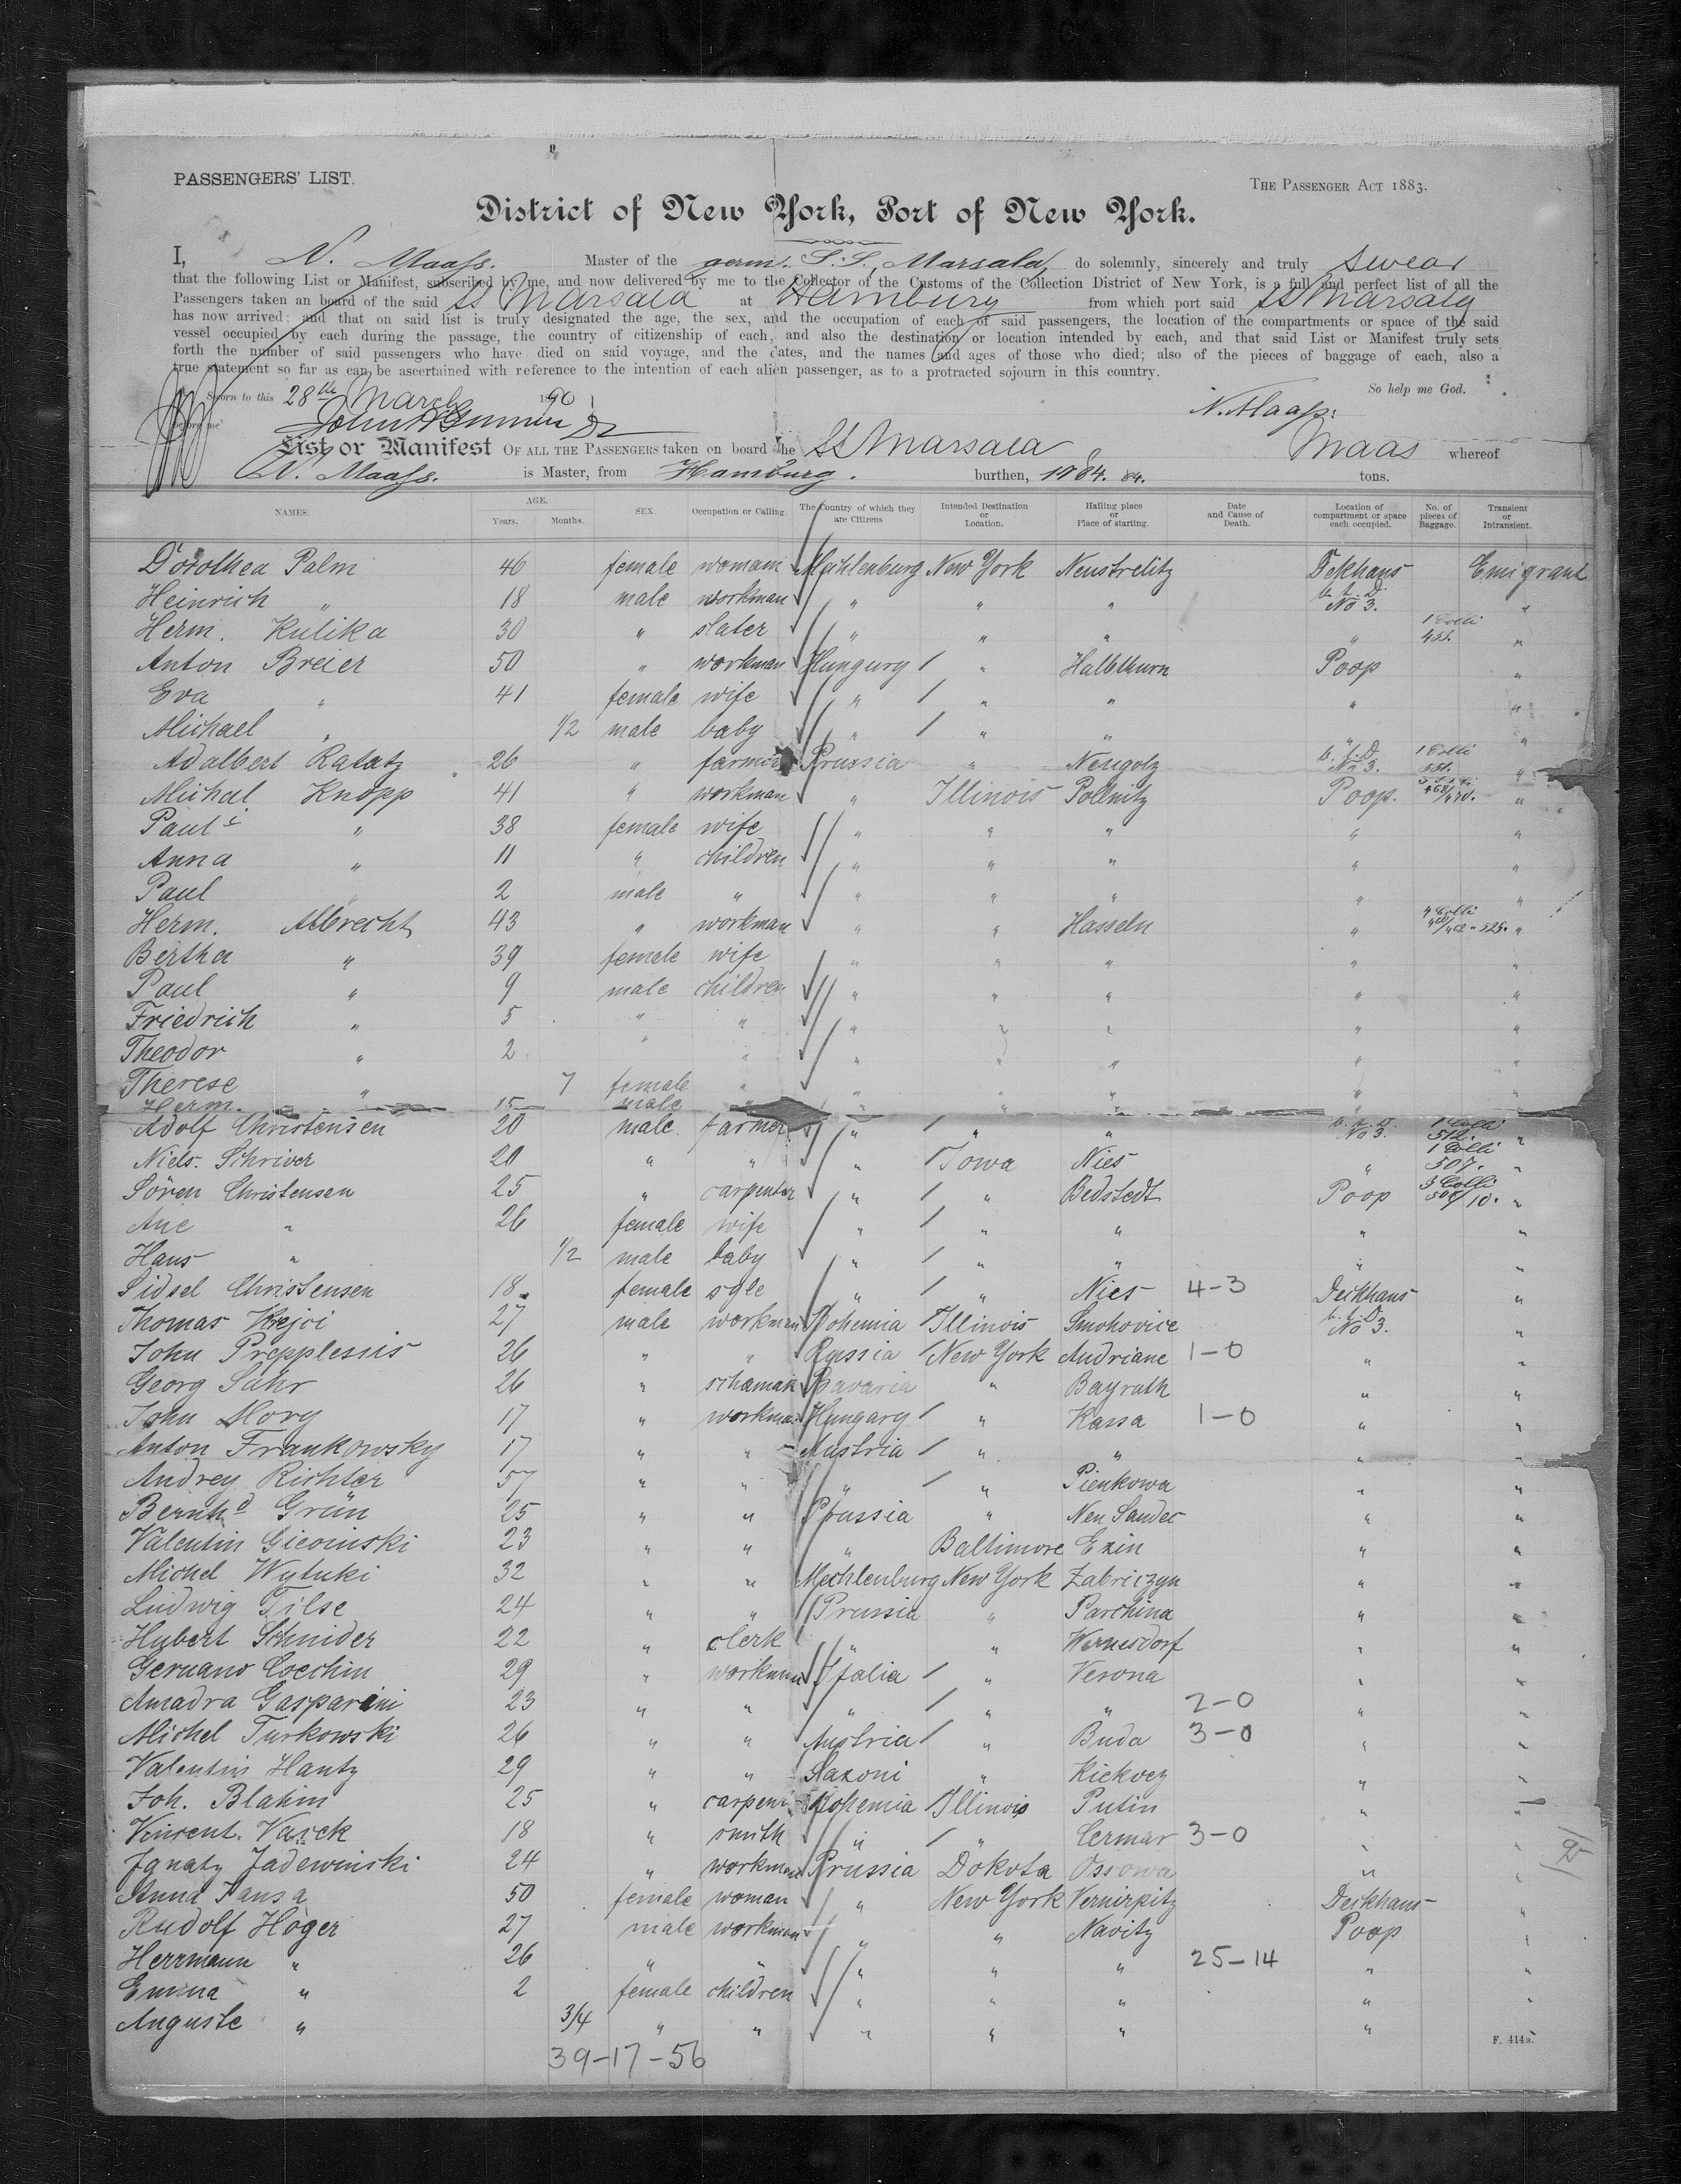 PASSENGERS' LIST.
THE PASSENGER ACT 1883.
District of New York, Port of New York.
I, N. Maass. Master of the germ. S.S. Marsala, do solemnly, sincerely and truly swear
that the following List or Manifest, subscribed by me, and now delivered by me to the Collector of the Customs of the Collection District of New York, is a full and perfect list of all the
Passengers taken on board of the said SS Marsala at Hamburg from which port said SS Marsala
has now arrived; and that on said list is truly designated the age, the sex, and the occupation of each of said passengers, the location of the compartments or space of the said
vessel occupied by each during the passage, the country of citizenship of each, and also the destination or location intended by each, and that said List or Manifest truly sets
forth the number of said passengers who have died on said voyage, and the dates, and the names and ages of those who died; also of the pieces of baggage of each, also a
true statement so far as can be ascertained with reference to the intention of each alien passenger, as to a protracted sojourn in this country.
Sworn to this 28th March 1890 So help me God.
before me John N. Maass.
List or Manifest OF ALL THE PASSENGERS taken on board the SS Marsala Maas whereof
N. Maass. is Master, from Hamburg. burthen, 1984. 84. tons.
NAMES. AGE. Years. Months. SEX. Occupation or Calling. The Country of which they are Citizens Intended Destination or Location. Hailing place or Place of starting. Date and Cause of Death. Location of compartment or space each occupied. No. of pieces of Baggage. Transient or Intransient.
Dorothea Palm 46 female womann Mechlenburg New York Neustrelitz Dekhaus Emigrant
Heinrich " 18 male workman " " " No 3. "
Herm. Kulika 30 " slater " " " " 1 Colli "
Anton Breier 50 " workman Hungury / " Halbthurn Poop "
Eva " 41 female wife " / " " " "
Michael " 1/2 male baby " / " " " "
Adalbert Ratatz 26 " farmer Prussia " Nengolz No 3. 1 Colli "
Michal Knopp 41 " workman " Illinois Pollnitz Poop. "
Paul " 38 female wife " " " " "
Anna " 11 " children " " " " "
Paul " 2 male " " " " " "
Herm. Albrecht 43 " workman " " Hasseln " 4 Colli "
Bertha " 39 female wife " " " " "
Paul " 9 male children " " " " "
Friedrich " 5 " " " " " " "
Theodor " 2 " " " " " " "
Therese " 7 female " " " " " "
Herm. " 15 male " " " " "
Adolf Christensen 20 male farmer " / " " No 3. 1 Colli 512. "
Niels. Schriver 20 " " " / Iowa Nies " 1 Colli 507. "
Sören Christensen 25 " carpenter " / " Bedstedt Poop 3 Colli 508/10. "
Ane " 26 female wife " / " " " "
Hans " 1/2 male baby " / " " " "
Sidsel Christensen 18 female sgle " / " Nies 4-3 Deckhaus "
Thomas Krejci 27 male workman Bohemia Illinois Smohovice No 3. "
John Prepplessis 26 " " Russia / New York Andriane 1-0 " "
Georg Sahr 26 " schamak Bavaria " Bayruth " "
John Mory 17 " workman Hungary / " Kassa 1-0 " "
Anton Frankowsky 17 " " Austria / " " " "
Andrey Richter 57 " " " / " Pienkowa " "
Bernhd Grün 25 " " Prussia " Neu Sandec " "
Valentin Giecinski 23 " " " Baltimore Exin " "
Michel Wytuki 32 " " Mechlenburg New York Zabriczyn " "
Ludwig Tilse 24 " " Prussia " Parchina " "
Hubert Schnider 22 " clerk " " Wernesdorf " "
Germano Coechin 29 " workman Italia / " Verona " "
Amadra Gasparini 23 " " " / " " 2-0 " "
Michel Turkowski 26 " " Austria / " Buda 3-0 " "
Valentin Hantz 29 " " Saxoni " Kickvez " "
Joh. Blahm 25 " carpent. Bohemia Illinois Putin " "
Vincent. Vacek 18 " smith " / " Cermar 3-0 " "
Ignatz Jadewinski 24 " workman Prussia Dokota Ossowa " "
Anna Jansa 50 female woman " New York Vernirpitz Deckhaus "
Rudolf Höger 27 male workman " " Navitz Poop "
Herrmann " 26 " " " " " 25-14 " "
Emma " 2 female children " " " " "
Auguste " 3/4 " " " " " "
39-17-56
F. 414a.